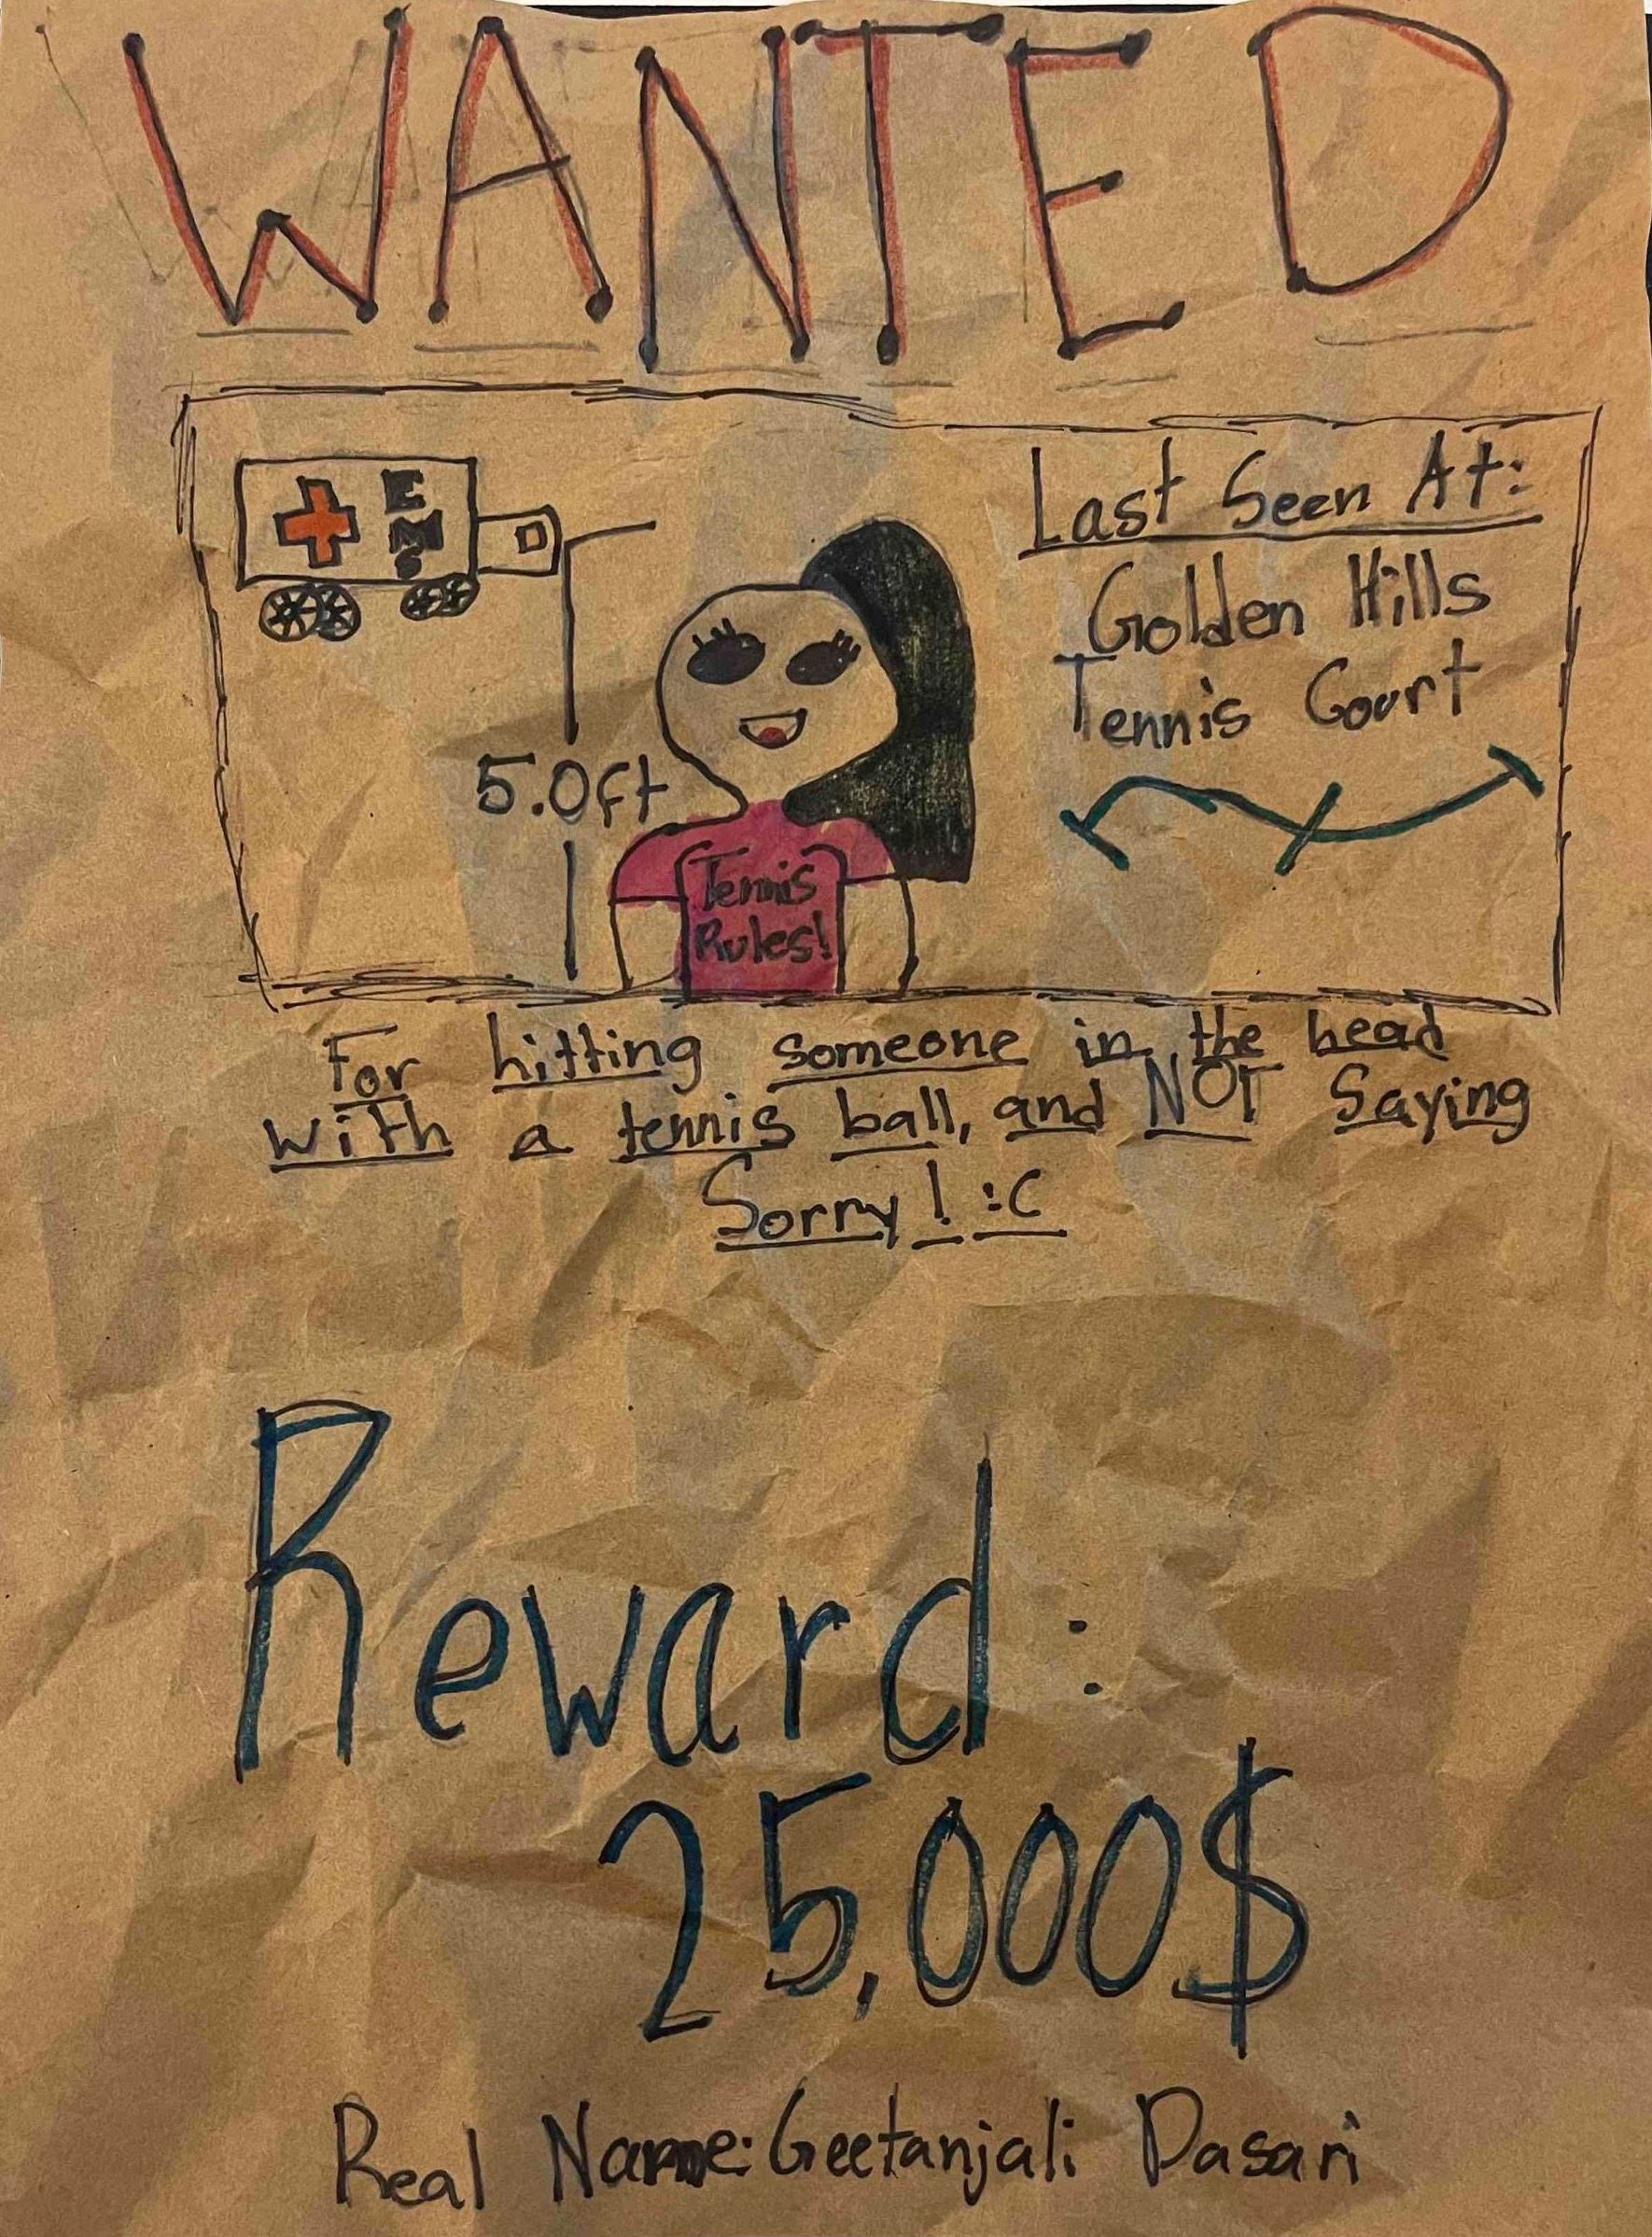 WANTED
EMS
Last Seen At:
Golden Hills
Tennis Court
5.0ft
Tennis
Rules!
For hitting someone in the head
with a tennis ball, and NOT Saying
Sorry! :C
Reward:
25,000$
Real Name: Geetanjali Dasari